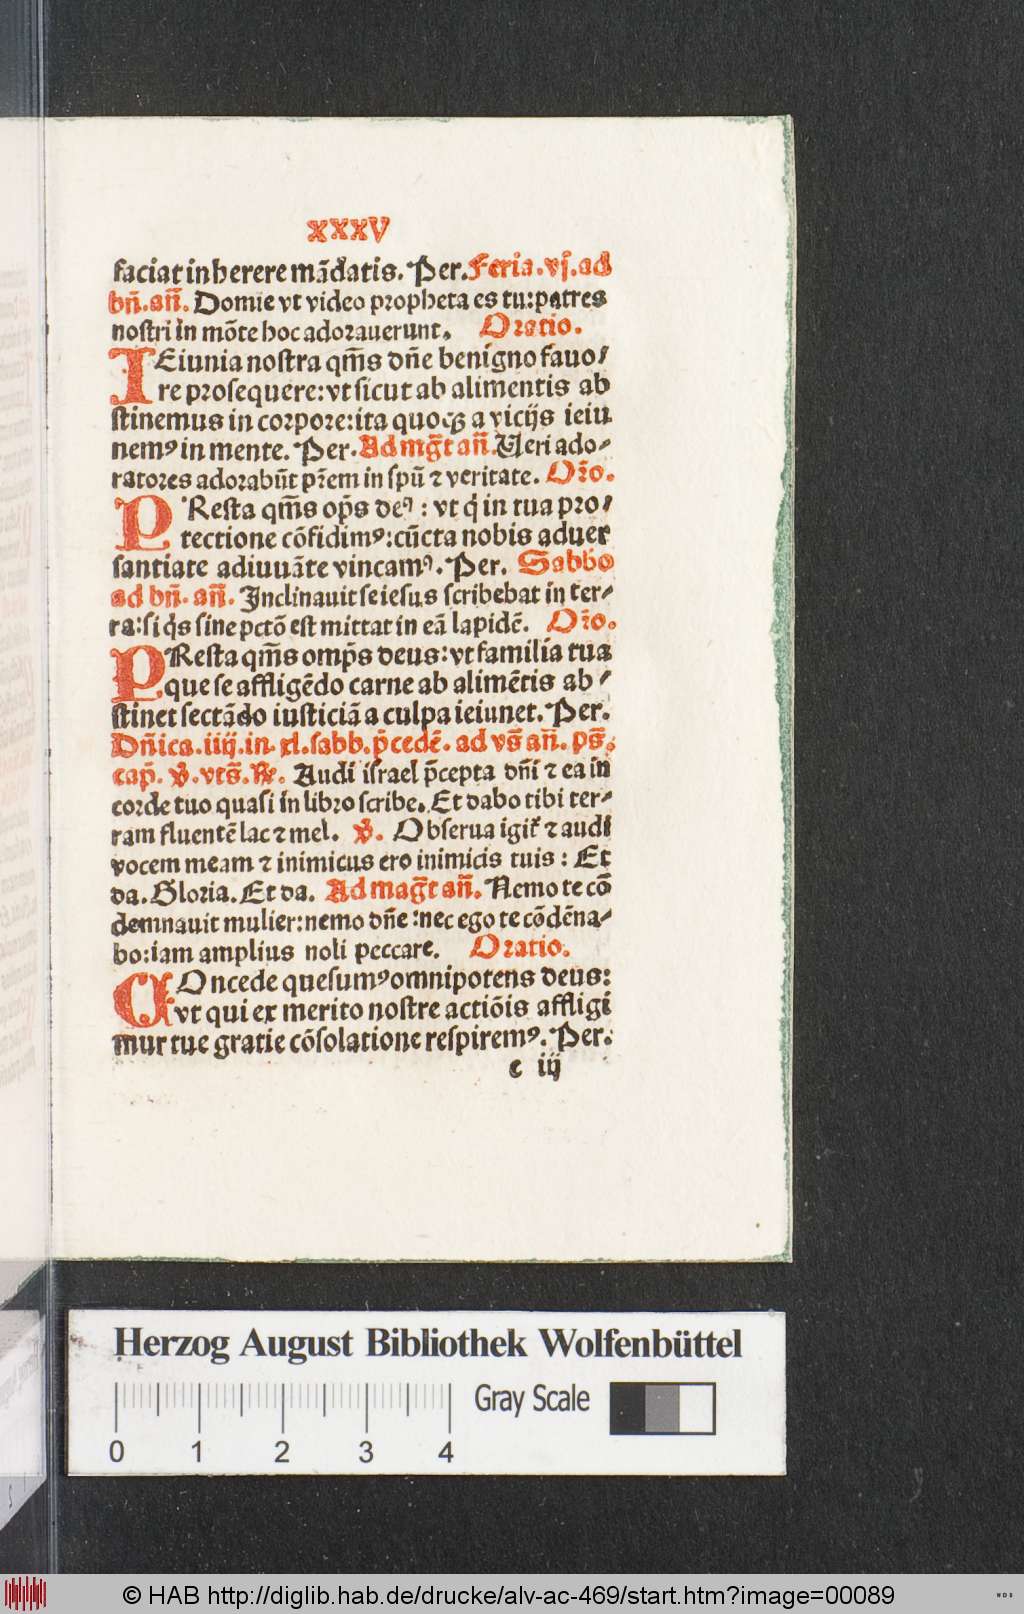 xxxv
faciat inherere mādatis. Per. Feria. vj. ad
bn̄. an̄. Domie vt video propheta es tu: patres
nostri in mōte hoc adorauerunt. Oratio.
IEiunia nostra qm̄s dn̄e benigno fauo/
re prosequere: vt sicut ab alimentis ab
stinemus in corpore: ita quoqꝫ a vicijs ieiu
nemꝰ in mente. Per. Ad mgn̄t an̄. Ueri ado-
ratores adorabūt pr̄em in spū ⁊ veritate. Or̄o.
PResta qm̄s op̄s deꝰ: vt q̇ in tua pro/
tectione cōfidimꝰ: cūcta nobis aduer
santiate adiuuāte vincamꝰ. Per. Sabbo
ad bn̄. an̄. Inclinauit se iesus scribebat in ter/
ra: si q̇s sine pctō est mittat in eā lapidē. Or̄o.
PResta qm̄s omp̄s deus: vt familia tua
que se affligēdo carne ab alimētis ab/
stinet sectādo iusticiā a culpa ieiunet. Per.
Dn̄ica. iiij. in. xl. sabb. p̄cedē. ad vs̄ an̄. ps̄.
cap̄. ꝟ. vts̄. ℟. Audi israel p̄cepta dn̄i ⁊ ea in
corde tuo quasi in libro scribe. Et dabo tibi ter/
ram fluentē lac ⁊ mel. ꝟ. Obserua igit̄ ⁊ audi
vocem meam ⁊ inimicus ero inimicis tuis: Et
da. Gloria. Et da. Ad magn̄t an̄. Nemo te cō
demnauit mulier: nemo dn̄e: nec ego te cōdēna/
bo: iam amplius noli peccare. Oratio.
COncede quesumꝰ omnipotens deus:
vt qui ex merito nostre actiōis affligi
mur tue gratie cōsolatione respiremꝰ. Per.
e iij
Herzog August Bibliothek Wolfenbüttel
Gray Scale
0 1 2 3 4
© HAB http://diglib.hab.de/drucke/alv-ac-469/start.htm?image=00089